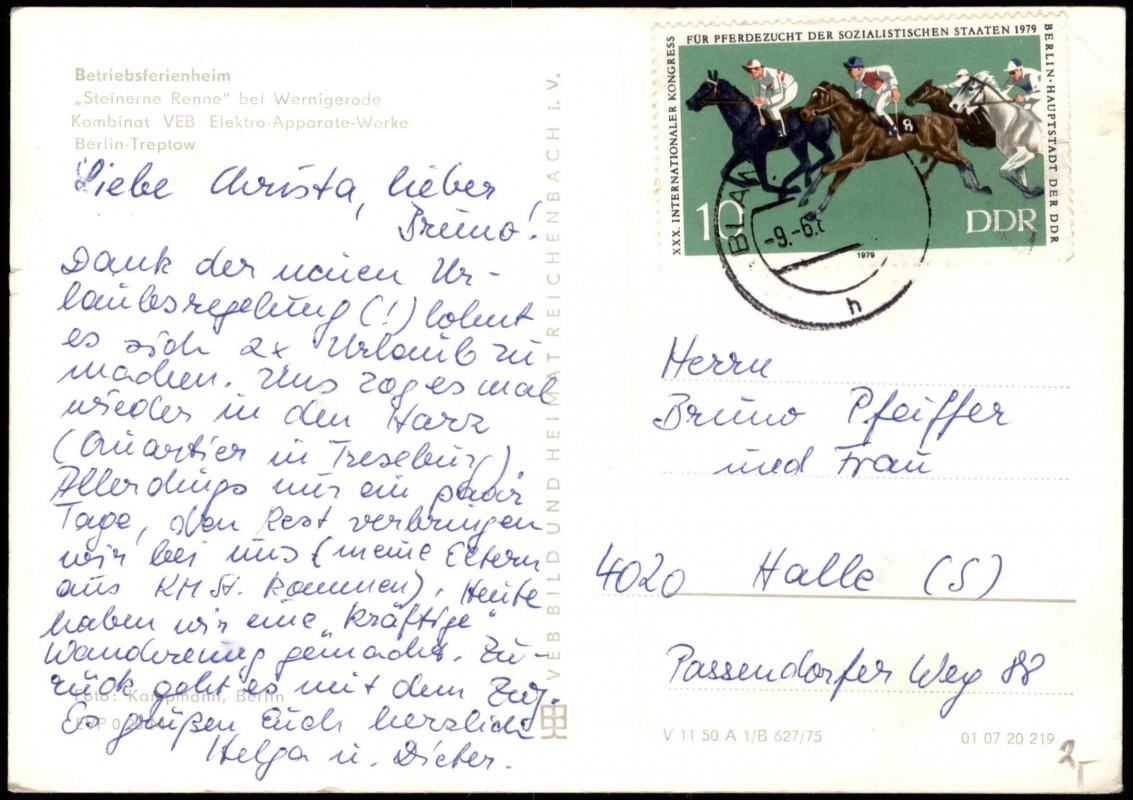 Betriebsferienheim
„Steinerne Renne" bei Wernigerode
Kombinat VEB Elektro-Apparate-Werke
Berlin-Treptow
Liebe Christa, lieber
Bruno!
Dank der neuen Ur-
laubsregelung (!) lohnt
es sich 2x Urlaub zu
machen. Uns zog es mal
wieder in den Harz
(Quartier in Treseburg).
Allerdings nur ein paar
Tage, den Rest verbringen
wir bei uns (meine Eltern
aus KMSt. kommen). Heute
haben wir eine „kräftige"
Wanderung gemacht. Zu-
rück geht es mit dem Zug.
Es grüßen Euch herzlich
Helga u. Dieter.
Foto: Kampmann, Berlin
VEB BILD UND HEIMAT REICHENBACH i. V.
XXX. INTERNATIONALER KONGRESS
FÜR PFERDEZUCHT DER SOZIALISTISCHEN STAATEN 1979
BERLIN·HAUPTSTADT DER DDR
8
10
DDR
1979
BLAN
-9.-6.
h
Herrn
Bruno Pfeiffer
und Frau
4020 Halle (S)
Passendorfer Weg 88
V 11 50 A 1/B 627/75
01 07 20 219
2,-